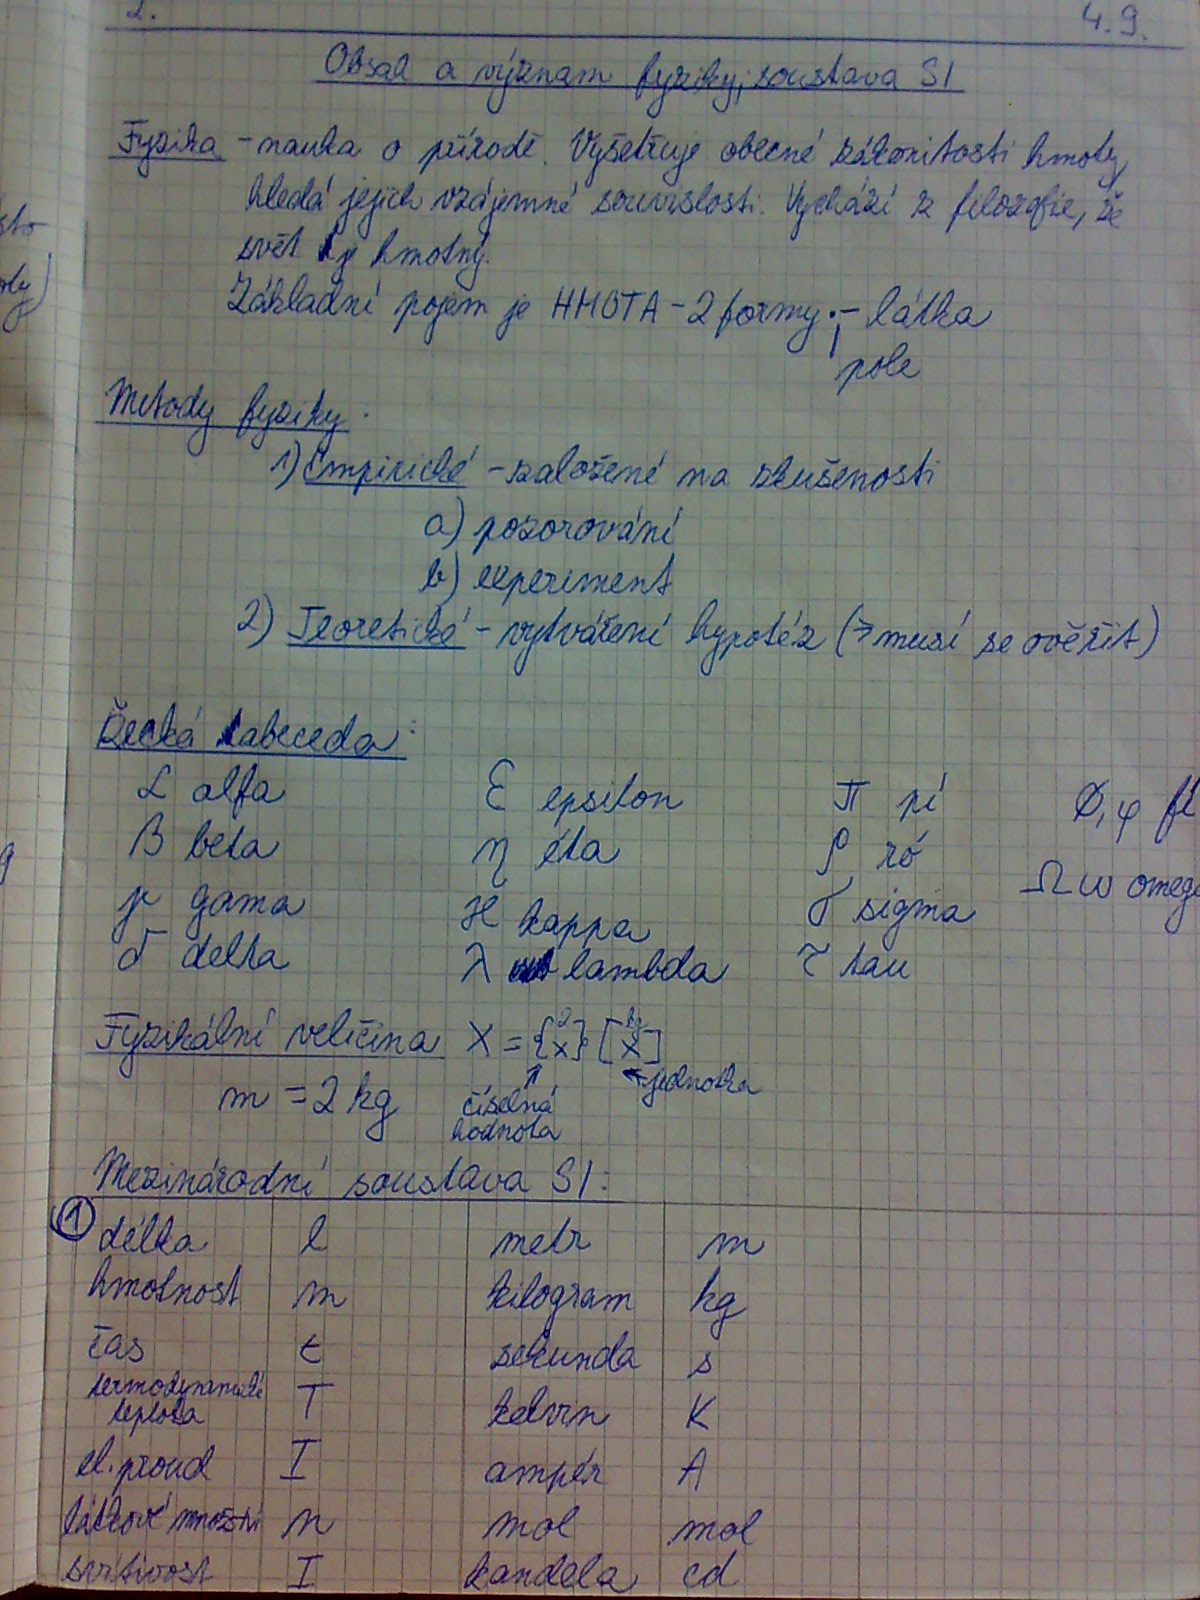 2. 4.9.
Obsah a význam fyziky, soustava SI
Fyzika - nauka o přírodě. Vyšetřuje obecné zákonitosti hmoty,
hledá jejich vzájemné souvislosti. Vychází z filozofie, že
svět je hmotný.
Základní pojem je HMOTA - 2 formy - látka
pole
Metody fyziky:
1) Empirické - založené na zkušenosti
a) pozorování
b) experiment
2) Teoretické - vytváření hypotéz (→ musí se ověřit)
Řecká abeceda:
α alfa ε epsilon π pí Φ, φ fí
β beta η éta ρ ró Ω ω omega
γ gama ϰ kappa σ sigma
δ delta λ lambda τ tau
Fyzikální veličina X = {x} [X]
2 kg
← jednotka
m = 2 kg číselná
hodnota
Mezinárodní soustava SI:
1 délka l metr m
hmotnost m kilogram kg
čas t sekunda s
termodynamická
teplota T kelvin K
el. proud I ampér A
látkové množství n mol mol
svítivost I kandela cd